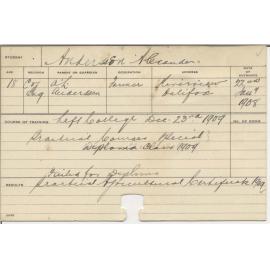 STUDENT
Anderson Alexander
AGE RELIGION PARENT OR GUARDIAN OCCUPATION ADDRESS DATE OF ENTRANCE
18 A. L. Farmer Riverview 22nd
Eng Anderson Halifax 1908
COURSE OF TRAINING Left College Dec. 23rd 1909 NO. OF ROOM
Practical Course Special
Diploma Class 1909
Failed for Diploma
RESULTS Practical Agricultural Certificate 1909